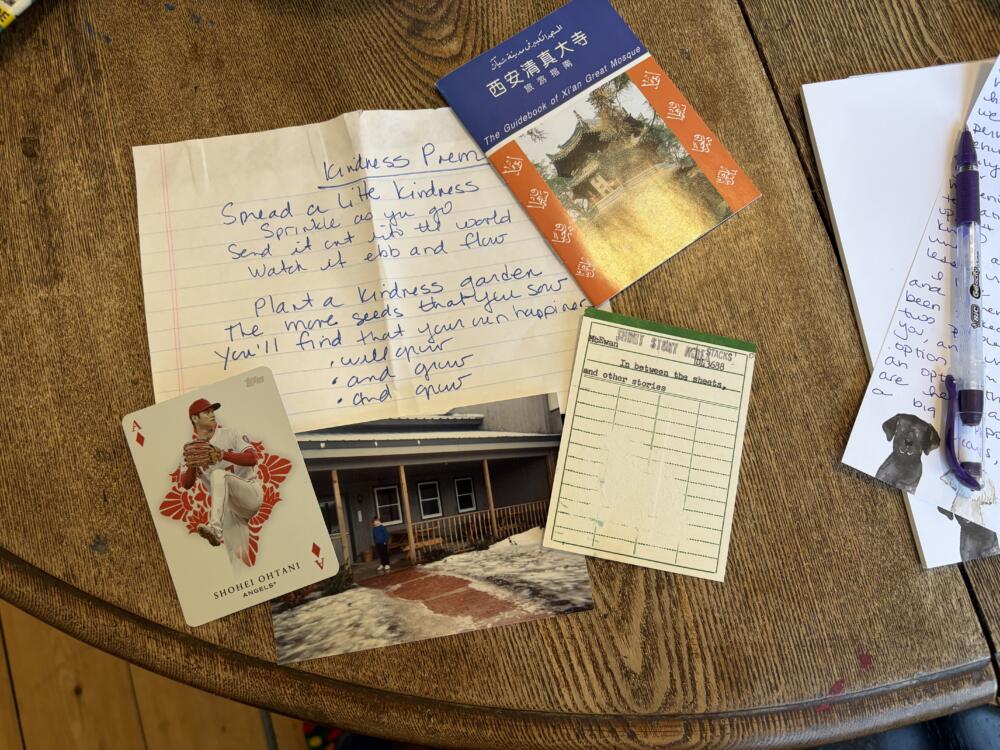 Kindness Prem
Spread a litte kindness
Sprinkle as you go
Send it out into the world
Watch it ebb and flow
Plant a kindness garden
The more seeds that you sow
You'll find that your own happiness
• will grow
• and grow
• and grow
西安清真大寺
旅游指南
The Guidebook of Xi'an Great Mosque
McEwan
SHORT STORY
STACKS
In between the sheets,
and other stories
topps
A
SHOHEI OHTANI
ANGELS
A
and I
been
two
you, an
option
an opt
are the
a big
BIC